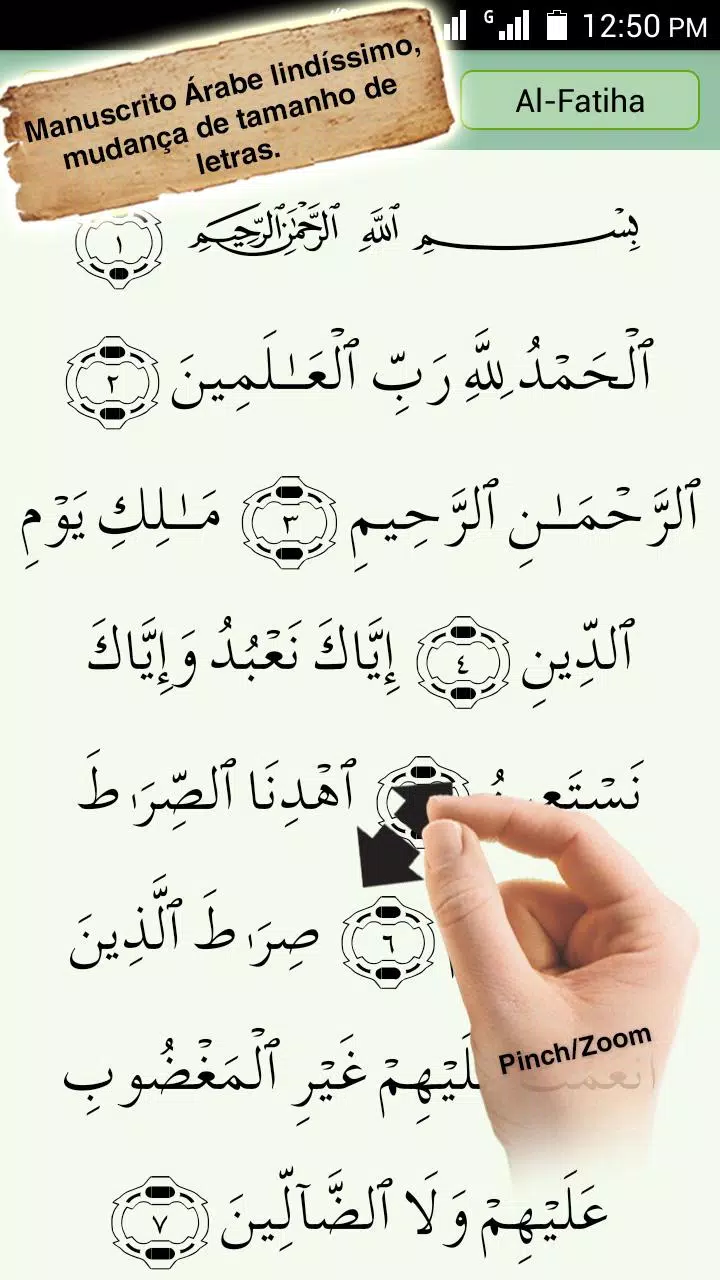 G 12:50 PM
Manuscrito Árabe lindíssimo,
mudança de tamanho de
letras.
Al-Fatiha
بِسْمِ ٱللَّهِ ٱلرَّحْمَٰنِ ٱلرَّحِيمِ ١
ٱلْحَمْدُ لِلَّهِ رَبِّ ٱلْعَـٰلَمِينَ ٢
ٱلرَّحْمَـٰنِ ٱلرَّحِيمِ ٣ مَـٰلِكِ يَوْمِ
ٱلدِّينِ ٤ إِيَّاكَ نَعْبُدُ وَإِيَّاكَ
نَسْتَعِينُ ٱهْدِنَا ٱلصِّرَٰطَ
٦ صِرَٰطَ ٱلَّذِينَ
أَنْعَمْتَ عَلَيْهِمْ غَيْرِ ٱلْمَغْضُوبِ
Pinch/Zoom
عَلَيْهِمْ وَلَا ٱلضَّآلِّينَ ٧